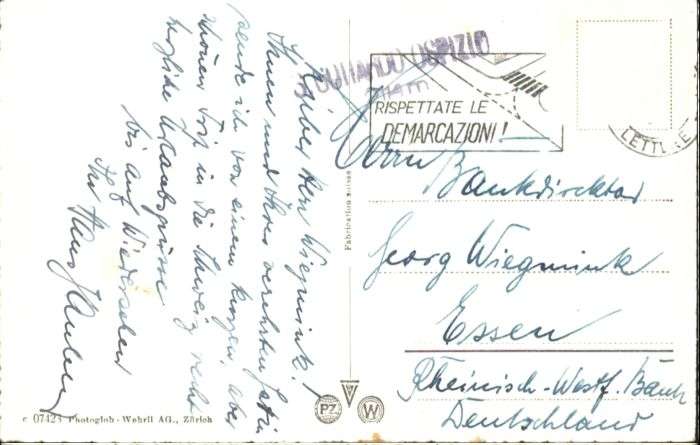 Lieber Herr Wiegmink!
Ihnen und Ihrer verehrten Gattin
sende ich von einem kurzen, aber
schönen Trip in die Schweiz recht
herzliche Urlaubsgrüsse
bis auf Wiedersehen
Ihr Hans
GOTTARDO OSPIZIO
2114 m
RISPETTATE LE
DEMARCAZIONI!
LETTI
Herrn Bankdirektor
Georg Wiegmink
Essen
Rheinisch-Westf. Bank
Deutschland
Fabrication suisse
PZ W
c 07423 Photoglob-Wehrli AG., Zürich